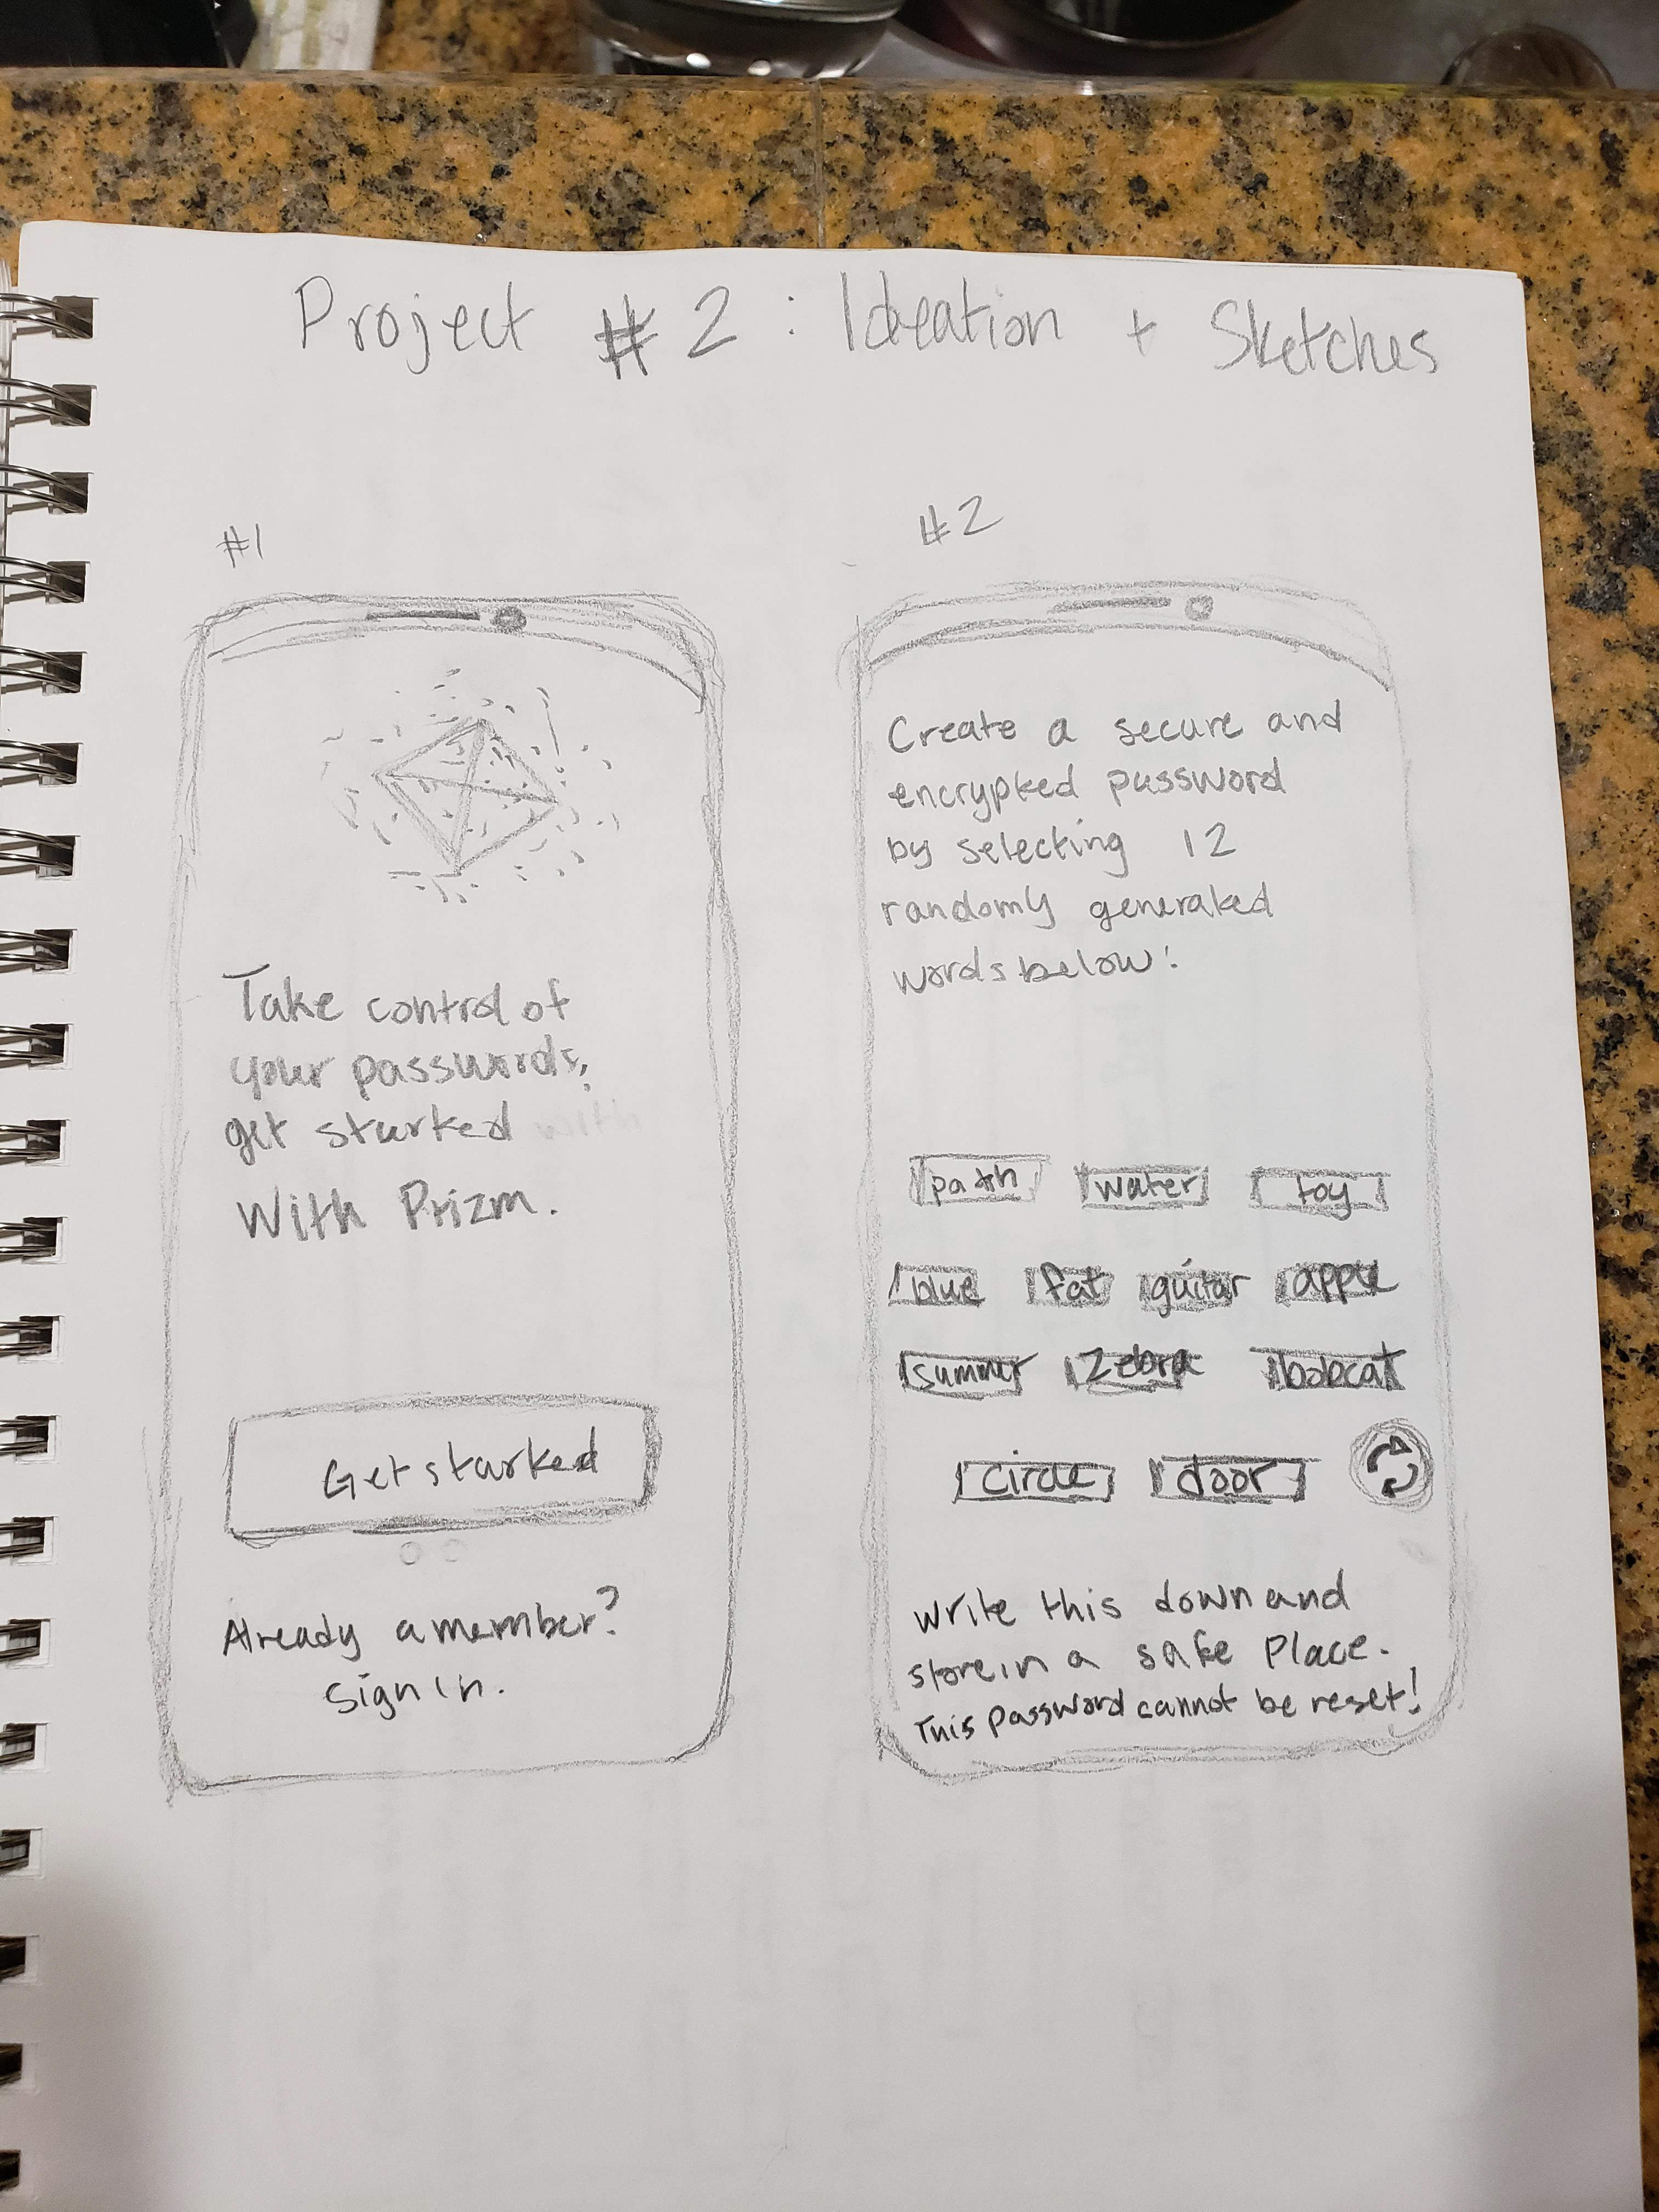 Project #2 : Ideation + Sketches
#1
Take control of
your passwords,
get started with
With Prizm.
Get started
Already a member?
Sign in.
#2
Create a secure and
encrypted password
by selecting 12
randomly generated
words below:
path water toy
blue fat guitar apple
summer Zebra bobcat
circle door
write this down and
store in a safe place.
This password cannot be reset!